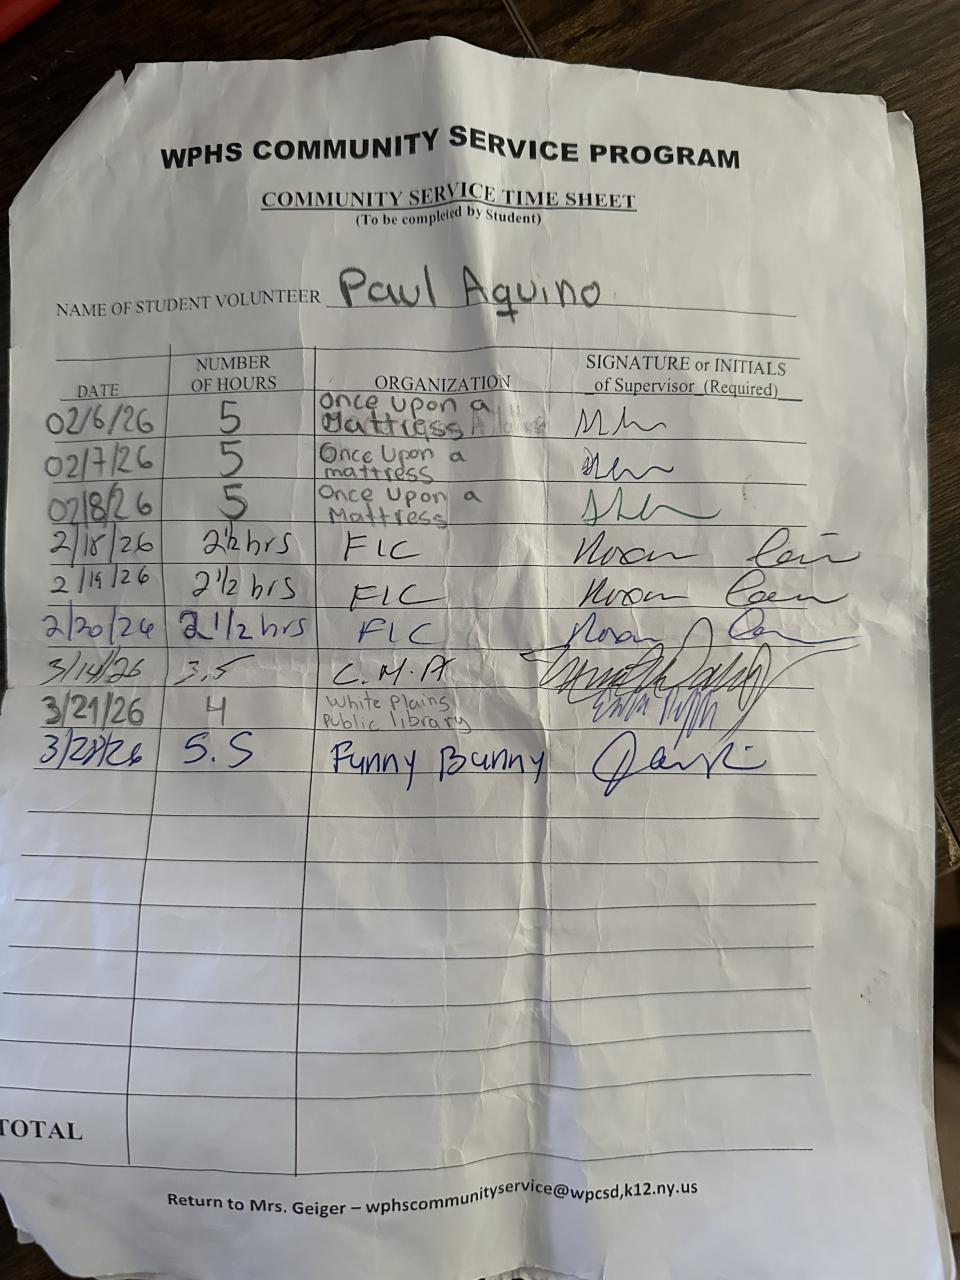 WPHS COMMUNITY SERVICE PROGRAM
COMMUNITY SERVICE TIME SHEET
(To be completed by Student)
NAME OF STUDENT VOLUNTEER Paul Aquino
DATE NUMBER OF HOURS ORGANIZATION SIGNATURE or INITIALS of Supervisor (Required)
02/6/26 5 Once Upon a Mattress
02/7/26 5 Once Upon a mattress
02/8/26 5 Once Upon a Mattress
2/18/26 2 1/2 hrs FIC
2/19/26 2 1/2 hrs FIC
2/20/26 2 1/2 hrs FIC
3/14/26 3.5 C.M.A
3/21/26 4 White Plains Public library
3/28/26 5.5 Funny Bunny
TOTAL
Return to Mrs. Geiger – wphscommunityservice@wpcsd,k12.ny.us